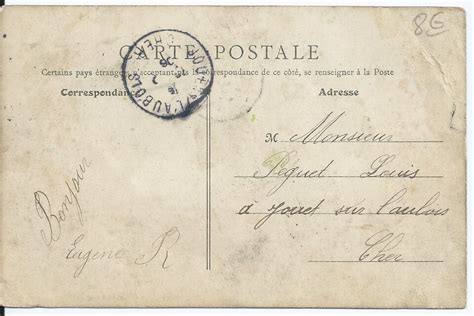 8€
CARTE POSTALE
Certains pays étrangers n'acceptant pas la correspondance de ce côté, se renseigner à la Poste
Correspondance
Adresse
JOUET-S-L'AUBOIS
CHER
M Monsieur
Péguet Louis
a jouet sur l'aubois
Cher
Bonjour
Eugene R